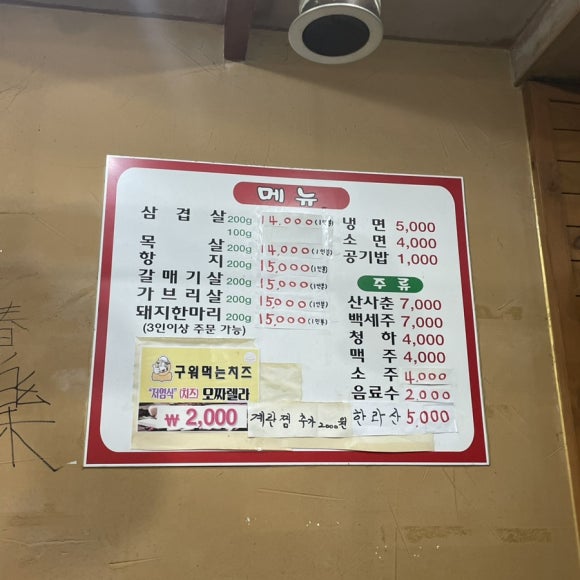 메뉴
삼겹살 200g 14,000 (1인분)
100g
목살 200g 14,000 (1인분)
항지 200g 15,000 (1인분)
갈매기살 200g 15,000 (1인분)
가브리살 200g 15,000 (1인분)
돼지한마리 200g 15,000 (1인분)
(3인이상 주문 가능)
냉면 5,000
소면 4,000
공기밥 1,000
주류
산사춘 7,000
백세주 7,000
청하 4,000
맥주 4,000
소주 4,000
음료수 2,000
한라산 5,000
구워먹는치즈
"저염식" (치즈) 모짜렐라
₩ 2,000
계란찜 추가 2000원
春
樂